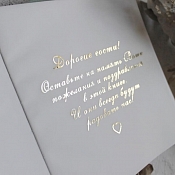 Дорогие гости!
Оставьте на память Свои
пожелания и поздравления
в этой книге
И они всегда будут
радовать нас!